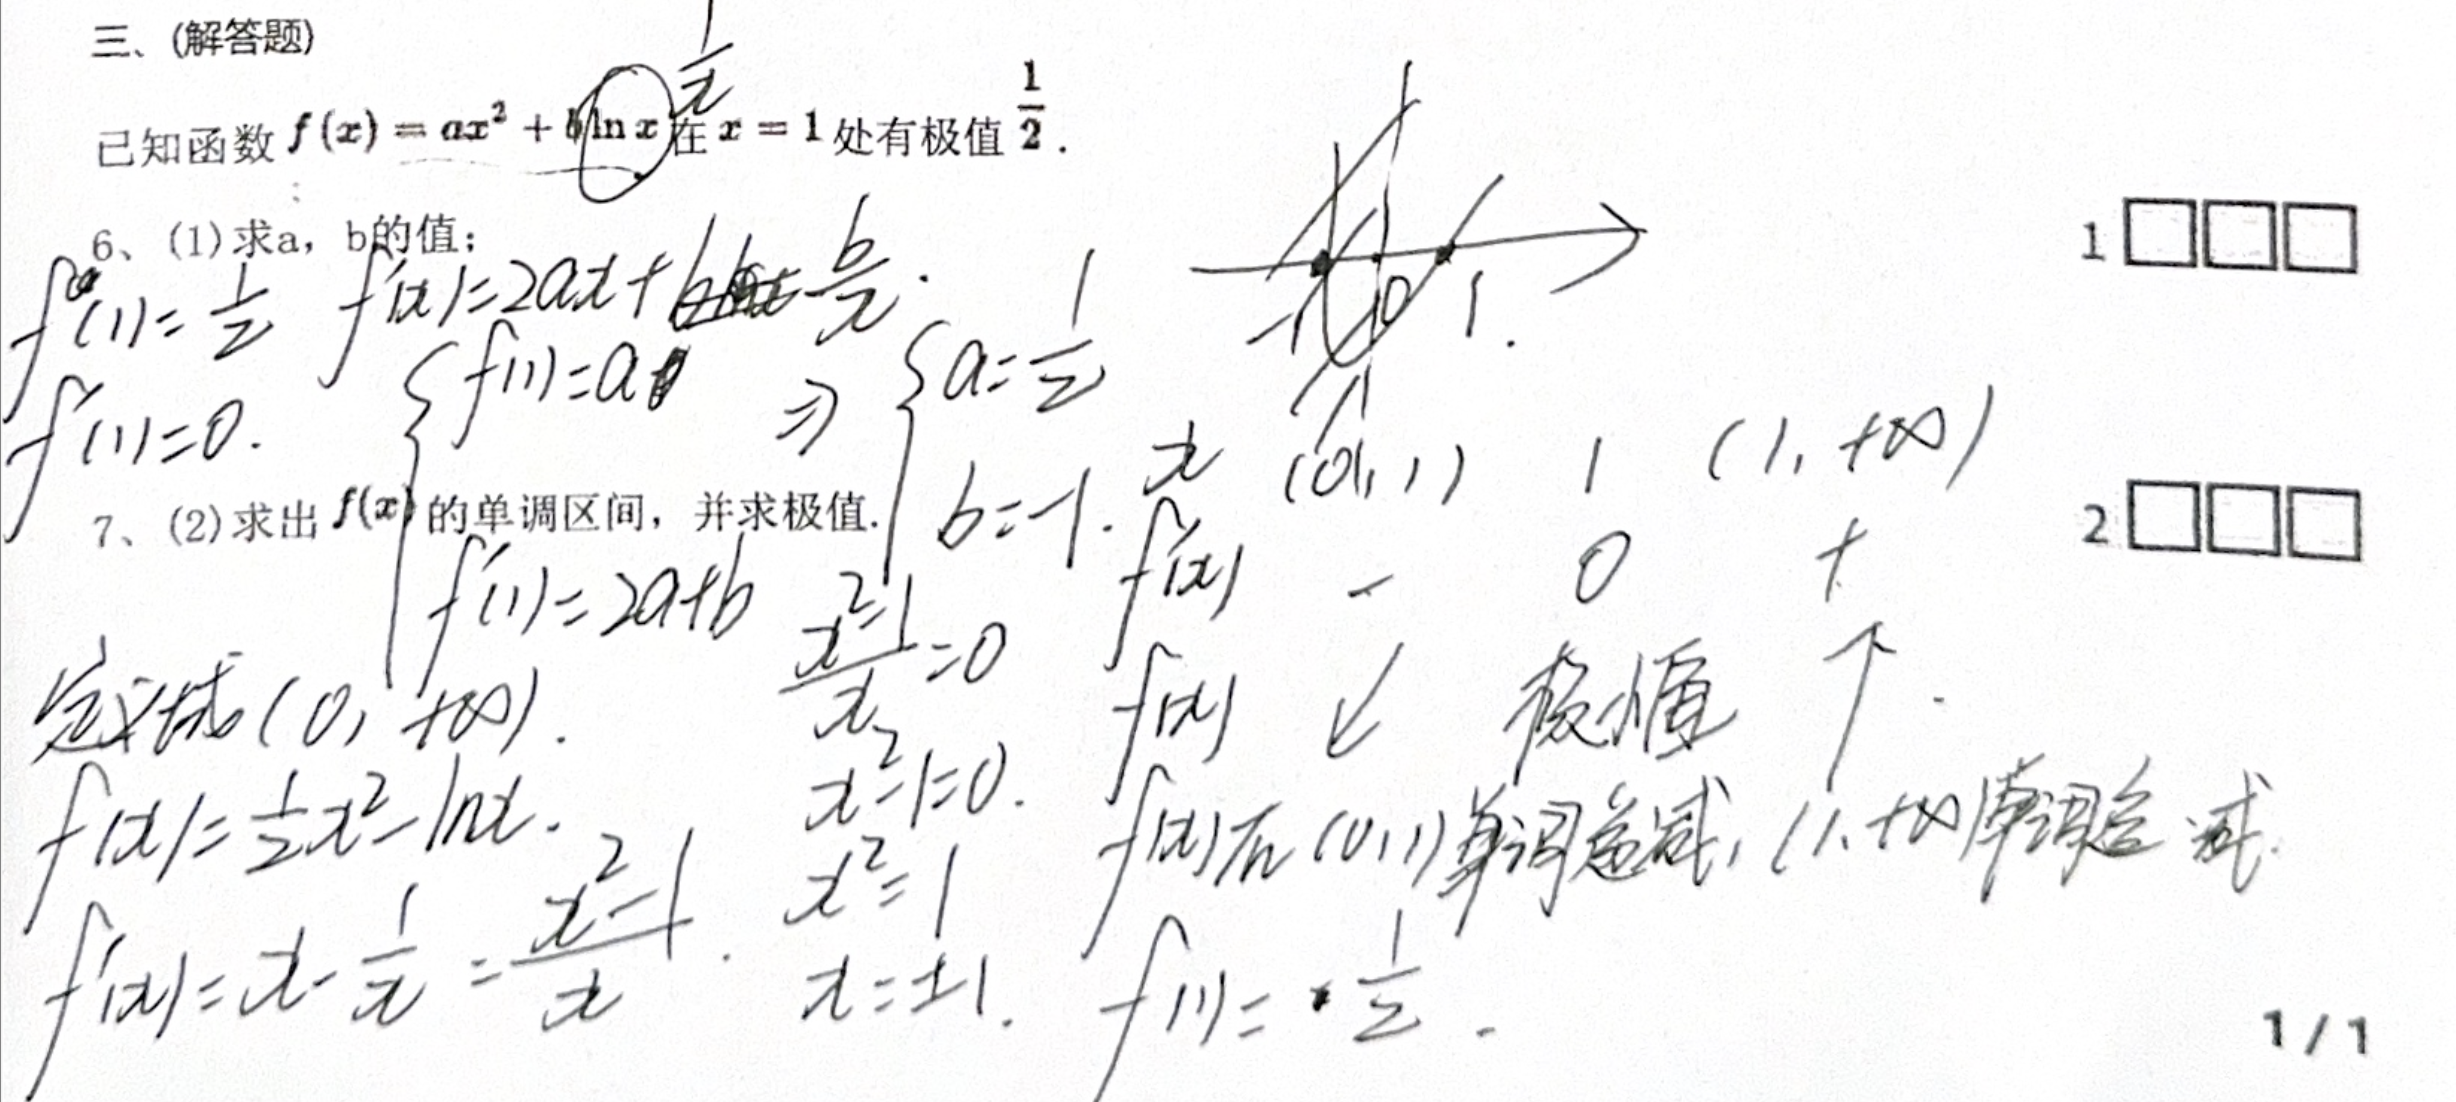 三、(解答题)
1/x
已知函数 f(x) = ax² + b ln x 在 x = 1 处有极值 1/2 .
6、(1)求a，b的值；
1 □□□
f(1)=1/2 f'(x)=2ax+ b/x .
f'(1)=0.
{ f(1)=a
f'(1)=2a+b
⇒ { a=1/2
b=-1.
-1 0 1 .
7、(2)求出 f(x) 的单调区间，并求极值.
2 □□□
定义域(0, +∞).
f(x)=1/2x²-lnx.
f'(x)=x-1/x=(x²-1)/x .
(x²-1)/x=0
x²-1=0.
x²=1
x=±1.
x (0,1) 1 (1,+∞)
f'(x) - 0 +
f(x) ↙ 极小值 ↗ .
f(x)在(0,1)单调递减, (1,+∞)单调递减.
f(1)= 1/2 .
1 / 1